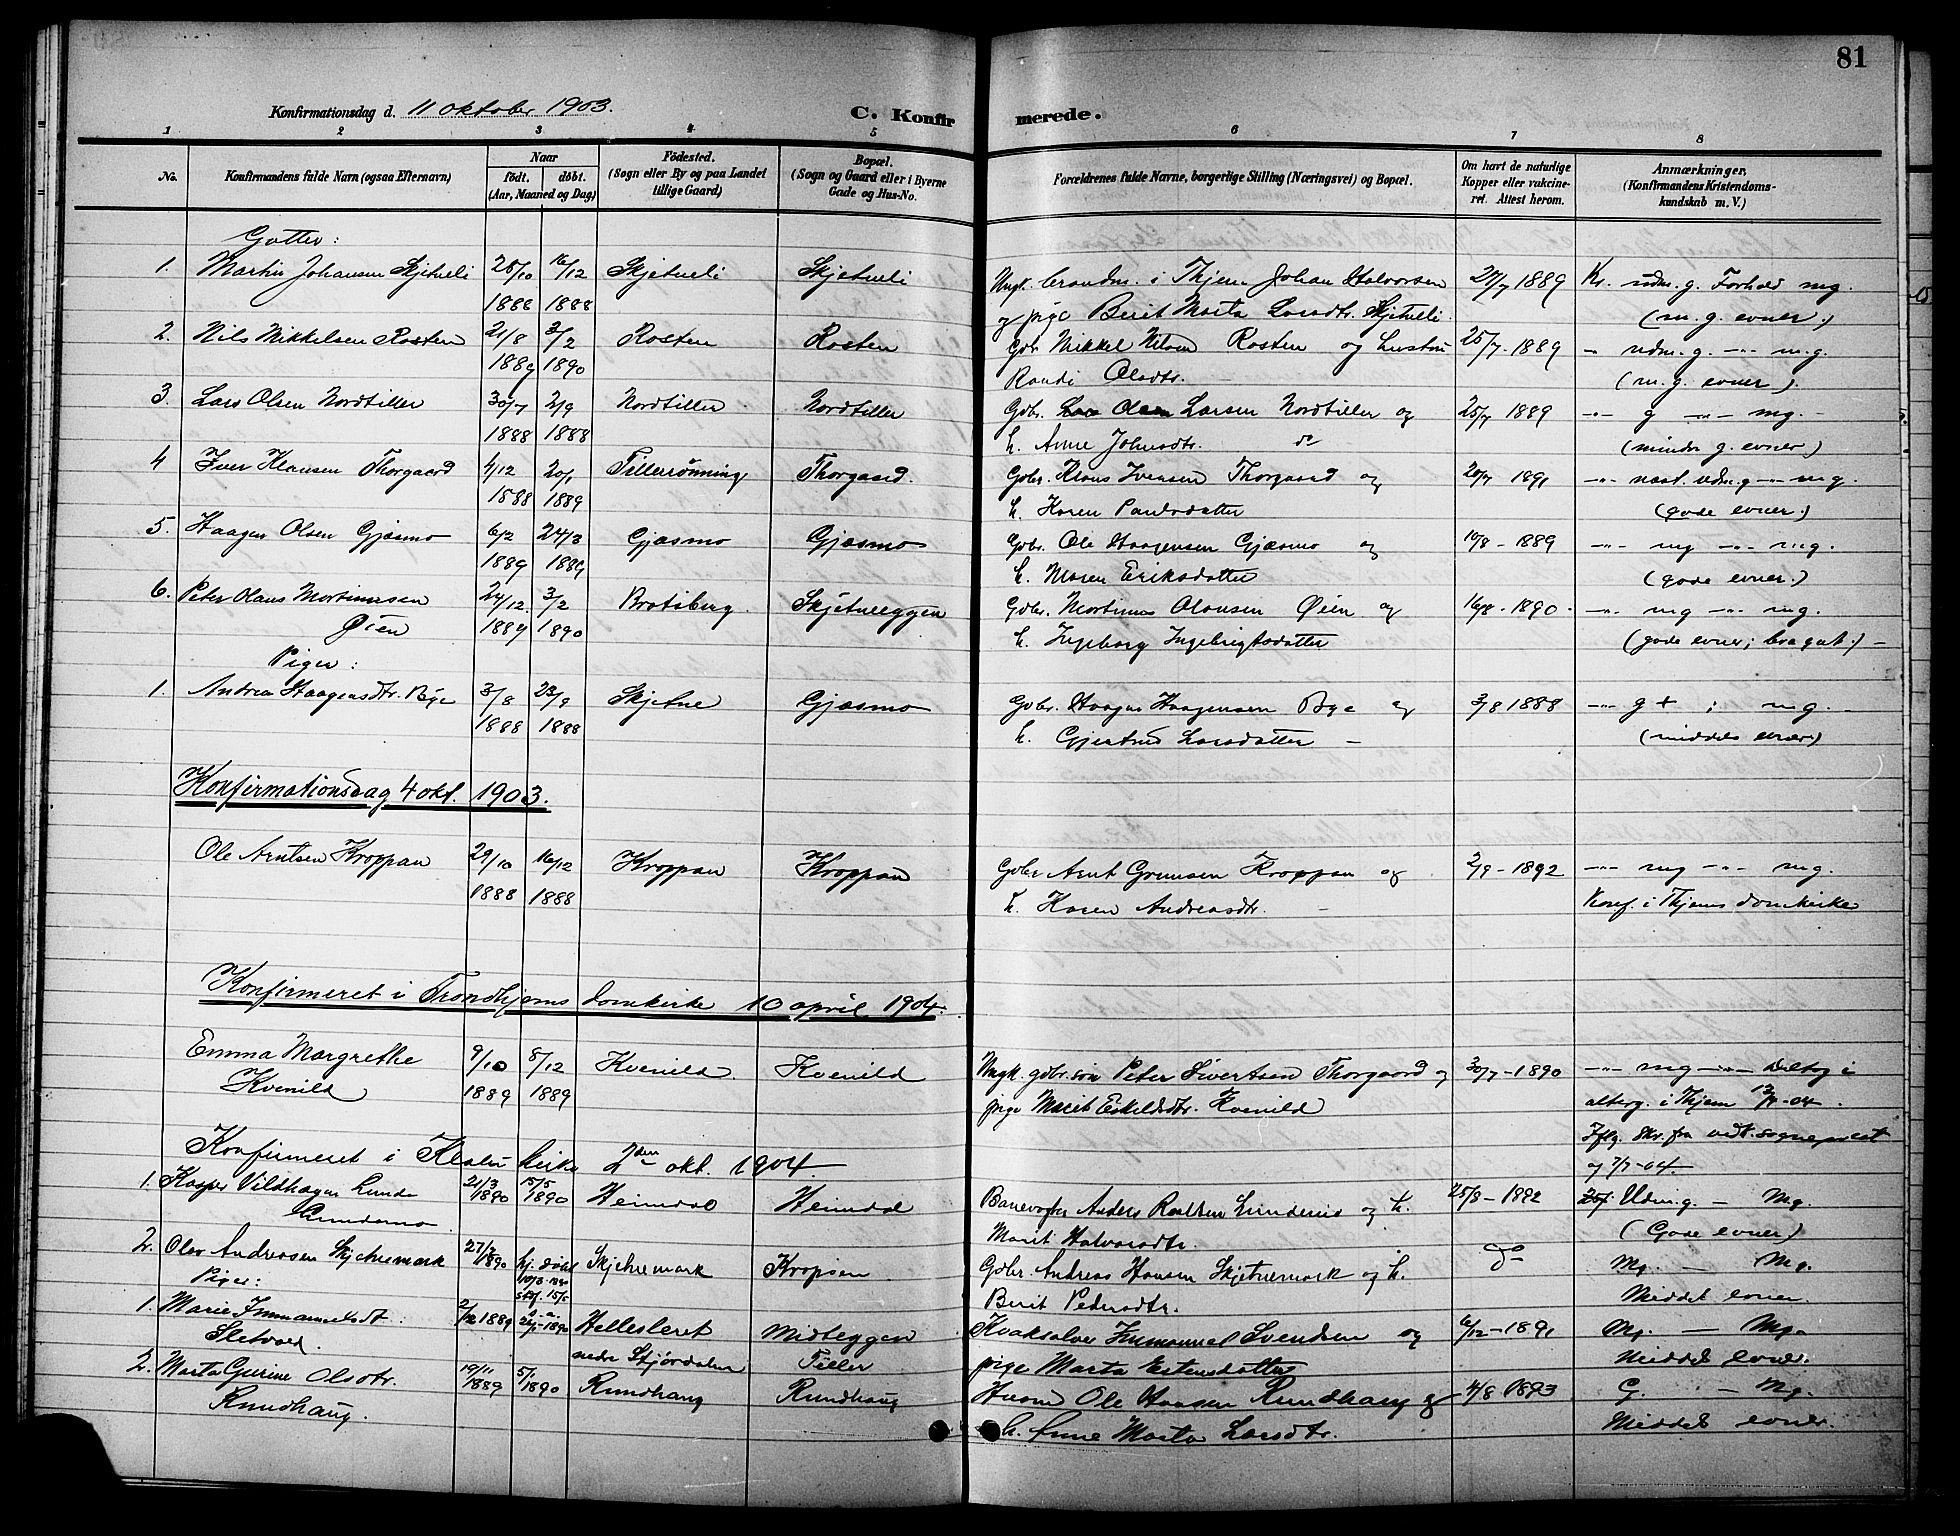 81
Konfirmationsdag d. 11 oktober 1903.
C. Konfirmerede.
1 2 3 4 5 6 7 8
No.
Konfirmandens fulde Navn (ogsaa Efternavn)
Naar
født. døbt.
(Aar, Maaned og Dag)
Fødested.
(Sogn eller By og paa Landet
tillige Gaard)
Bopæl.
(Sogn og Gaard eller i Byerne
Gade og Hus-No.
Forældrenes fulde Navne, borgerlige Stilling (Næringsvei) og Bopæl.
Om havt de naturlige
Kopper eller vakcine-
ret. Attest herom.
Anmærkninger,
(Konfirmandens Kristendoms-
kundskab m. V.)
Gutter:
1. Martin Johansen Skjetneli 25/10 16/12 Skjetneli Skjetneli Ungk. brandm. i Thjem Johan Halvorsen 27/7 1889 Kr. udm. g. Forhold mg.
1888 1888 og pige Berit Marta Larsdtr. Skjetneli (m. g. evner.)
2. Nils Mikkelsen Rosten 21/8 2/2 Rosten Rosten Gbr. Mikkel Nilsen Rosten og hustru 25/7-1889 " udm. g. -"- m.g.
1889 1890 Randi Olsdtr. (m. g. evner).
3. Lars Olsen Nordtiller 30/7 2/9 Nordtiller Nordtiller Gdbr. Larsen Nordtiller og 25/7 1889 -"- g -"- mg.
1888 1888 h. Anne Johnsdtr. do (mindre g. evner.)
4 Iver Klausen Thorgaard 4/12 20/1 Tillerrønning Thorgaard. Gdbr. Klaus Iversen Thorgaard og 20/7 1891 -"- næst. udm. g -"- mg.
1888 1889 h. Karen Paulsdatter (gode evner.)
5. Haagen Olsen Gjæsmo 6/2 24/3 Gjæsmo Gjæsmo Gdbr. Ole Haagensen Gjæsmo og 10/8-1889 -"- mg -"- mg.
1889 1889 h. Maren Eriksdatter (gode evner.)
6. Peter Olaus Mortinusen 24/12 3/2 Bratsberg Skjetneeggen Gdbr. Mortinus Olausen Øien og 16/8-1890. -"- mg -"- mg.
Øien 1889 1890 h. Ingeborg Ingebrigtsdatter
Piger:
1. Andrea Haagensdtr. Bye 3/8 23/9 Skjetne Gjæsmo Gdbr. Haagen Haagensen Bye og 3/8 1888 -"- g + ; mg.
1888 1888 h. Gjertrud Larsdatter (middels evner)
Konfirmationsdag 4 okt. 1903.
Ole Arntsen Kroppan 29/10 16/12 Kroppan Kroppan Gdbr Arnt Grensen Kroppan og 2/9-1892 -"- mg -"- mg.
1888 1888 h. Karen Andreasdtr. Konf. i Thjems domkirke
Konfirmeret i Trondhjems domkirke 10 april 1904.
Emma Margrethe 9/10 8/12 Kvenild. Kvenild Ungk. gdbr.søn Peter Sivertsen Thorgaard og 30/7-1890 -"- mg -"- Deltog i
Kvenild 1889 1889 pige Marit Eskildsdtr. Kvenild alterg. i Thjem
Iflg. Skr. fra vedk. sogneprest
og 7/7-04
Konfirmeret i Klæbu kirke 2den okt. 1904
1. Kasper Vildhagen Lunde 21/3 15/5 Heimdal Heimdal Banevogter Anders og h. 25/8-1892 Udm. g. - Mg.
1890 1890 Marit Halvorsdtr. (Gode evner)
2. Olav Andreasen Skjetnemark 27/2 1890 hj. døbt Skjetnemark Kropsen Gdbr. Andreas Hansen Skjetnemark og h. do Mg. - Mg.
Piger: Berit Pedersdtr. Middel evner.
1. Marie Immanuelsdt. 2/12 1889 Hellesleret Midteggen Kvaksalver Immanuel Svendsen og 6/12-1891 Mg. - Mg.
Sletvold. nedre Stjørdalen Tiller pige Marta Estensdatter Middel evner.
2. Marta Gurine Olsdtr. 19/11 1889 5/1 1890 Rundhaug Rundhaug Husmd Ole Hansen Rundhaug og 4/8 1893 G. - Mg.
Rundhaug. h. Anne Marta Larsdtr. Middel evner.